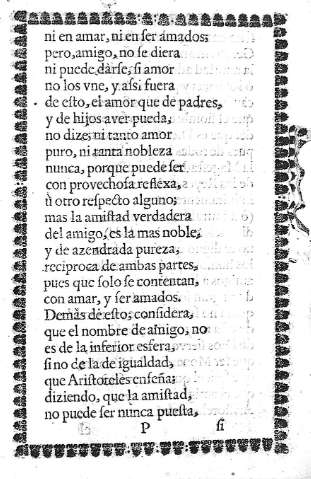 ni en amar, ni en ser amados;
pero, amigo, no se diera
ni puede darse, si amor
no los vne, y assi fuera
de esto, el amor que de padres,
y de hijos aver pueda,
no dize, ni tanto amor
puro, ni tanta nobleza
nunca, porque puede ser
con provechosa reflexa,
ù otro respecto alguno;
mas la amistad verdadera
del amigo, es la mas noble,
y de azendrada pureza,
reciproca de ambas partes,
pues que solo se contentan,
con amar, y ser amados.
Demàs de esto, considera,
que el nombre de amigo, no
es de la inferior esfera,
sino de la de igualdad,
que Aristoteles enseña;
diziendo, que la amistad,
no puede ser nunca puesta,
P si